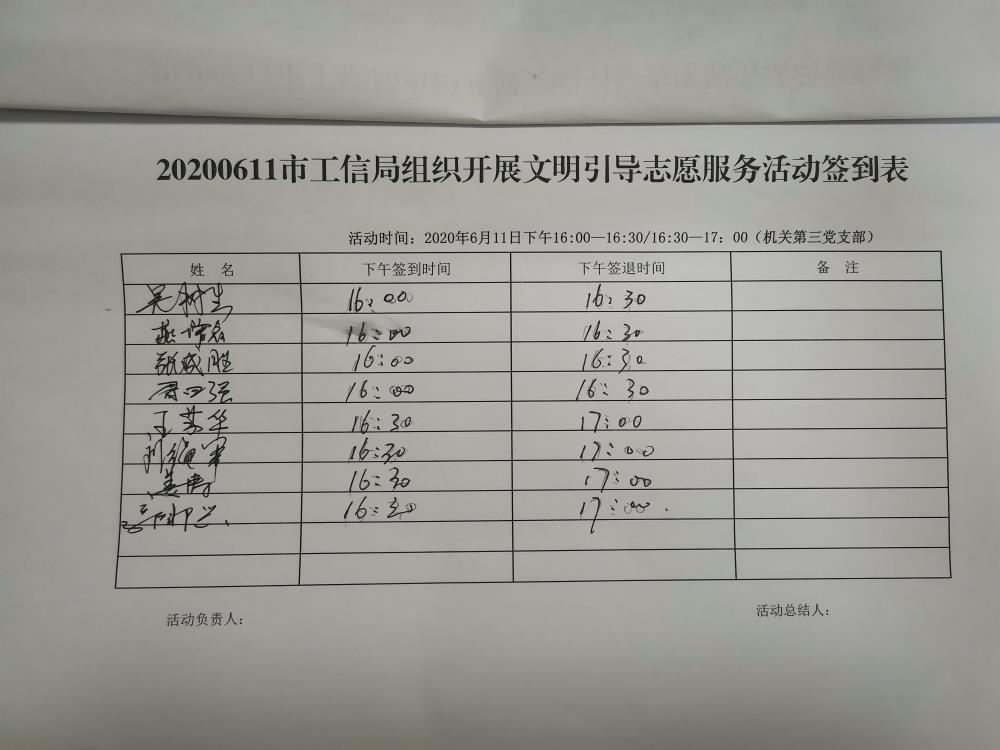 20200611市工信局组织开展文明引导志愿服务活动签到表
活动时间：2020年6月11日下午16:00—16:30/16:30—17：00（机关第三党支部）
姓 名 下午签到时间 下午签退时间 备 注
吴树生 16:00 16:30
16:00 16:30
16:00 16:30
16:00 16:30
王苏华 16:30 17:00
16:30 17:00
16:30 17:00
16:30 17:00.
活动负责人： 活动总结人：